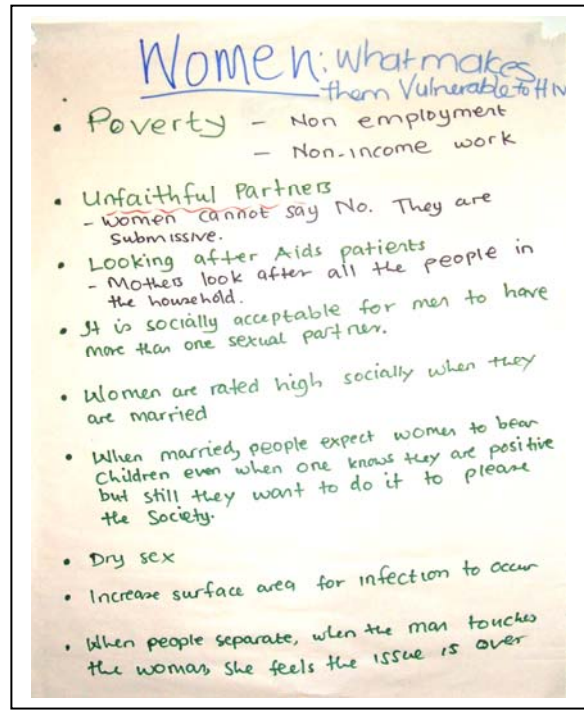 Women: What makes
them Vulnerable to HIV
• Poverty – Non employment
– Non-income work
• Unfaithful Partners
- Women cannot say No. They are
Submissive.
• Looking after Aids patients
- Mothers look after all the people in
the household.
• It is socially acceptable for men to have
more than one sexual partner.
• Women are rated high socially when they
are married
• When married, people expect women to bear
children even when one knows they are positive
but still they want to do it to please
the Society.
• Dry sex
• Increase surface area for infection to occur
• When people separate, when the man touches
the woman, she feels the issue is over